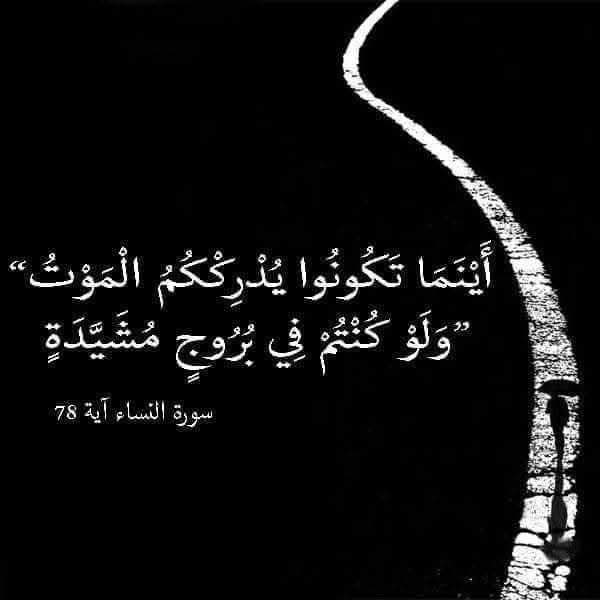 أَيْنَمَا تَكُونُوا يُدْرِكْكُمُ الْمَوْتُ“
”وَلَوْ كُنْتُمْ فِي بُرُوجٍ مُشَيَّدَةٍ
سورة النساء آية 78